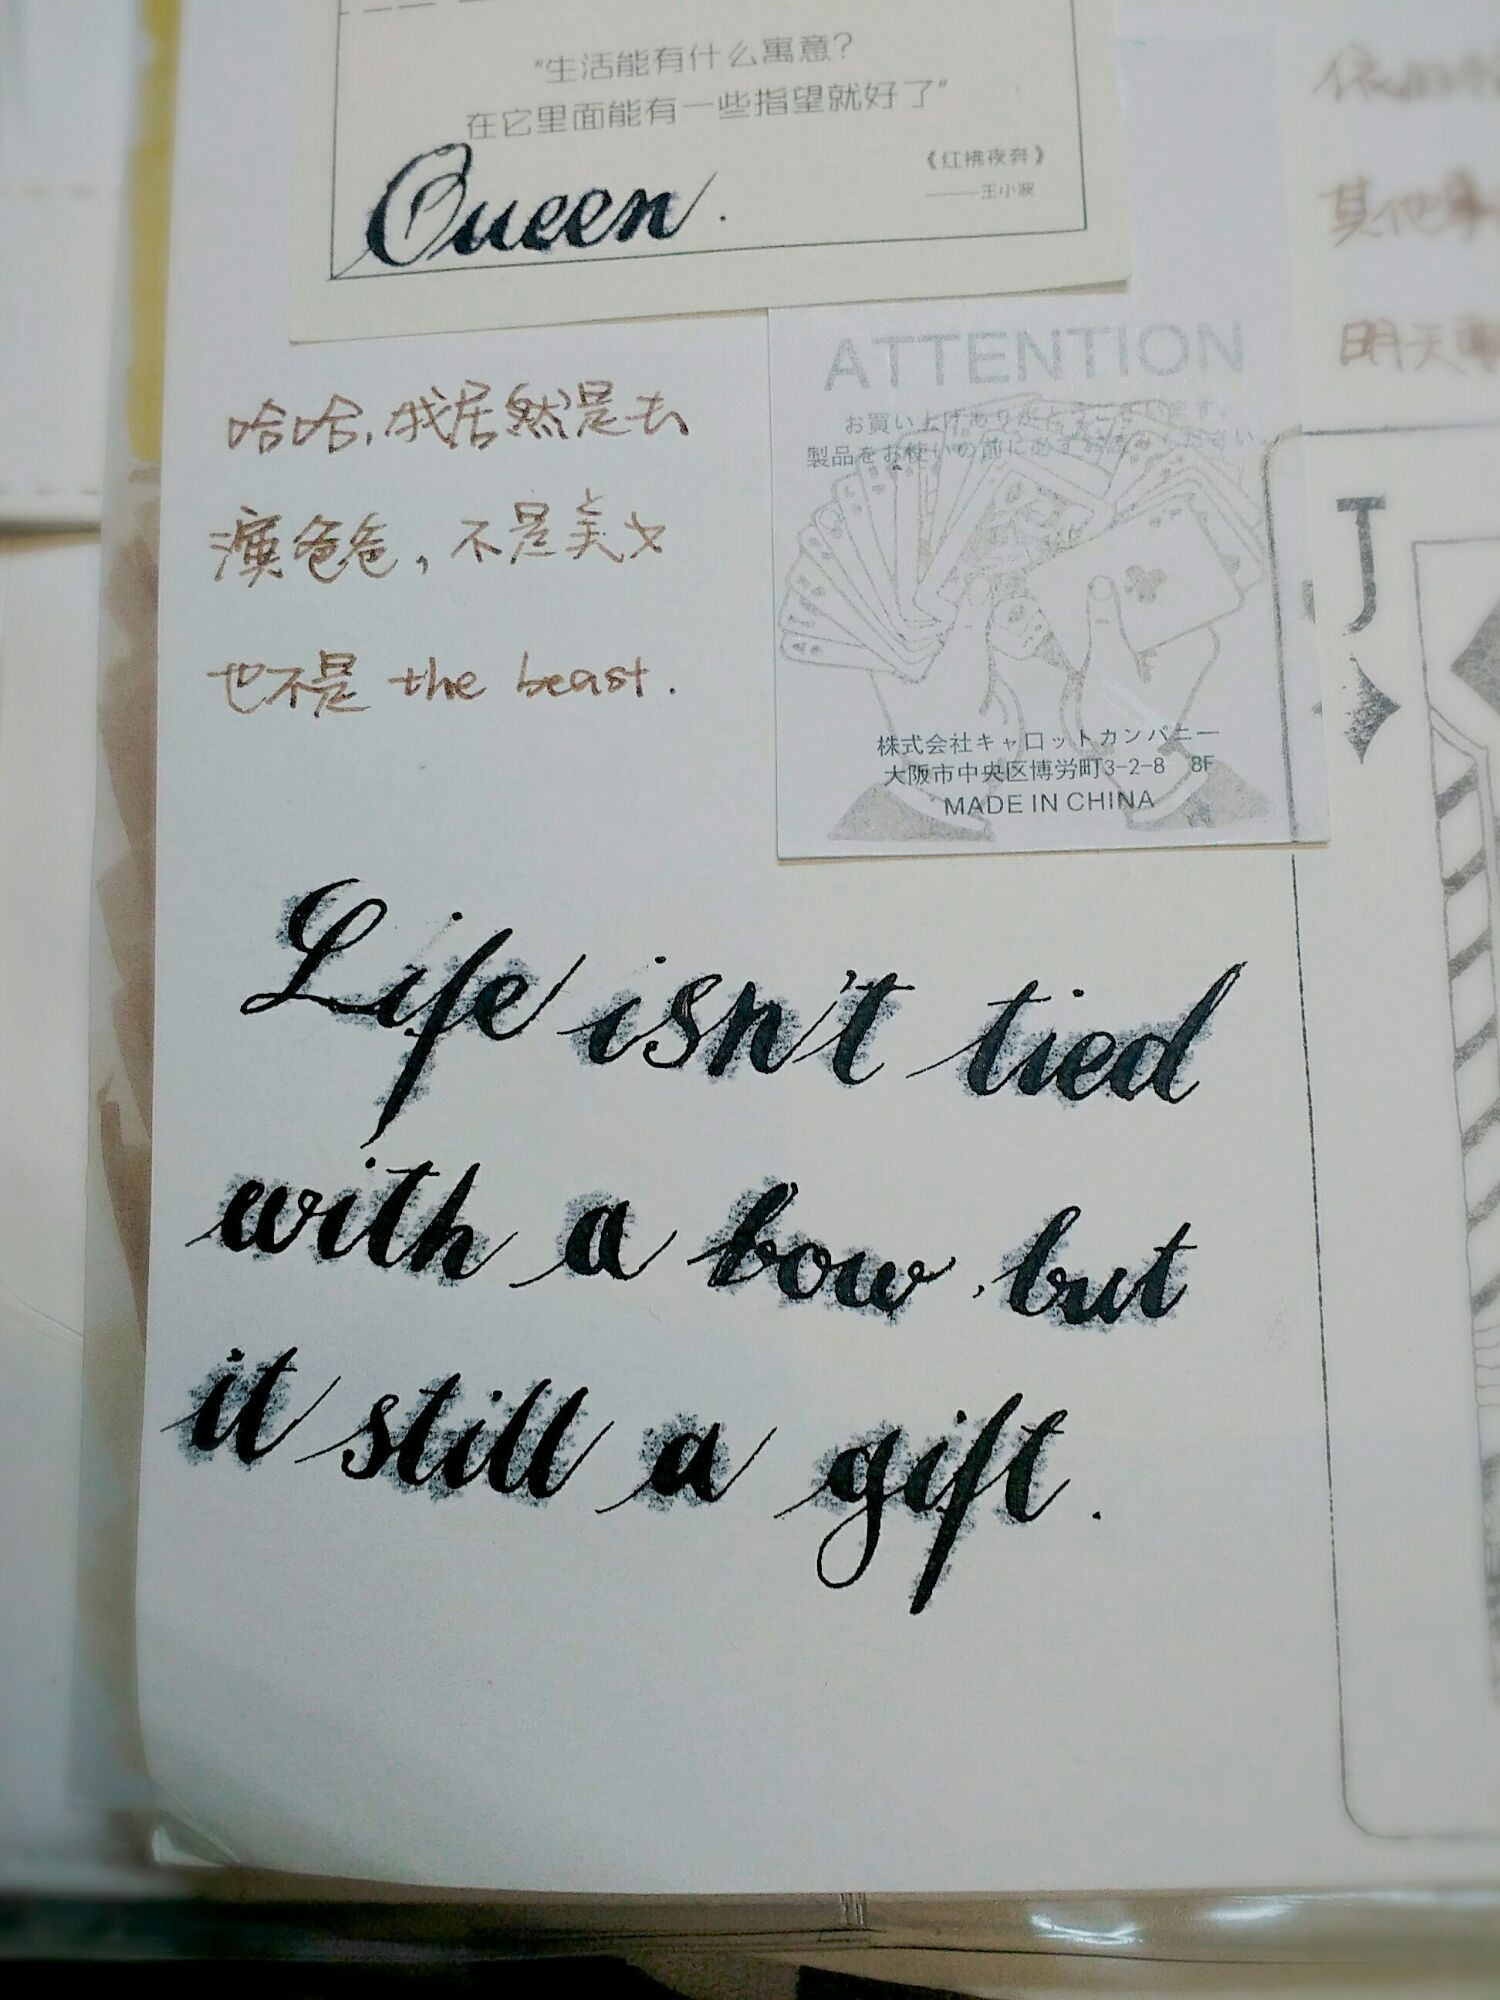 “生活能有什么寓意？
在它里面能有一些指望就好了”
《红拂夜奔》
——王小波
Queen.
ATTENTION
お買い上げありがとうございます。
製品をお使いの前に必ずお読みください。
株式会社キャロットカンパニー
大阪市中央区博労町3-2-8 8F
MADE IN CHINA
哈哈,我居然是去
演爸爸,不是美女
也不是 the beast.
Life isn't tied
with a bow, but
it still a gift.
其他事
明天
J